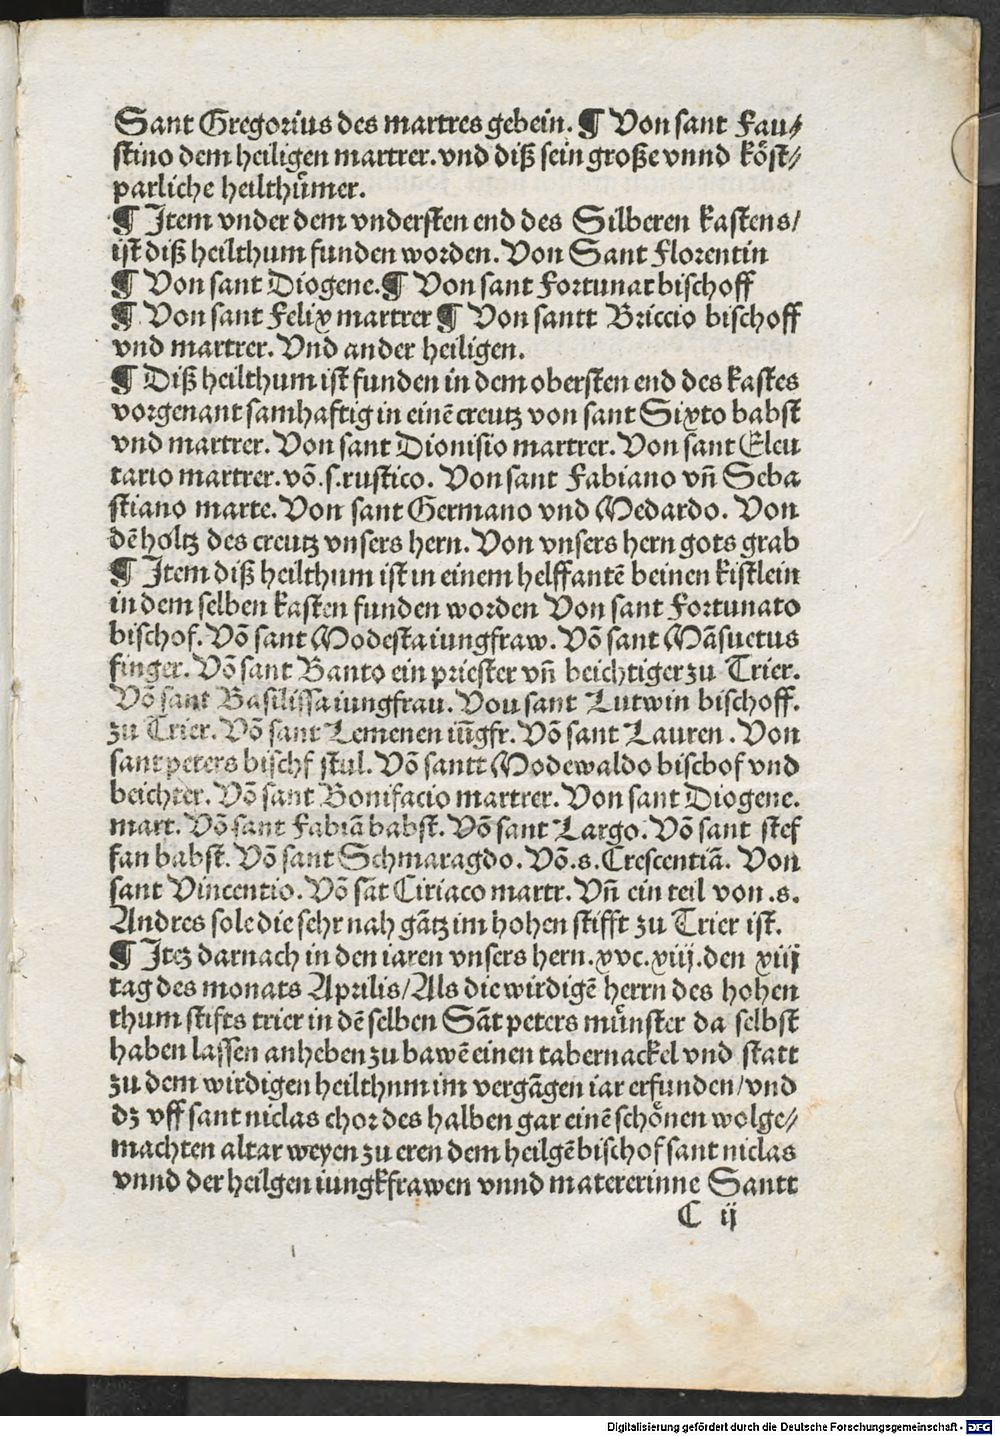 Sant Gregorius des martres gebein. ¶ Von sant Fau⸗
stino dem heiligen martrer. vnd diß sein große vnnd köst⸗
parliche heilthůmer.
¶ Item vnder dem vndersten end des Silberen kastens/
ist diß heilthum funden worden. Von Sant Florentin
¶ Von sant Diogene. ¶ Von sant Fortunat bischoff
¶ Von sant Felix martrer ¶ Von santt Briccio bischoff
vnd martrer. Vnd ander heiligen.
¶ Diß heilthum ist funden in dem obersten end des kastes
vorgenant samhaftig in einē creutz von sant Sixto babst
vnd martrer. Von sant Dionisio martrer. Von sant Eleu
tario martrer. vō. s. rustico. Von sant Fabiano vn̄ Seba
stiano marte. Von sant Germano vnd Medardo. Von
dē holtz des creutz vnsers hern. Von vnsers hern gots grab
¶ Item diß heilthum ist in einem helffantē beinen kistlein
in dem selben kasten funden worden Von sant Fortunato
bischof. Vō sant Modesta iungfraw. Vō sant Māsuetus
finger. Vō sant Banto ein priester vn̄ beichtiger zu Trier.
Vō sant Basilissa iungfrau. Vou sant Lutwin bischoff.
zu Trier. Vō sant Lemenen iūgfr. Vō sant Lauren. Von
sant peters bischf stul. Vō santt Modewaldo bischof vnd
beichter. Vō sant Bonifacio martrer. Von sant Diogene.
mart. Vō sant Fabiā babst. Vō sant Largo. Vō sant stef
fan babst. Vō sant Schmaragdo. Vō. s. Crescentiā. Von
sant Vincentio. Vō sāt Ciriaco martr. Vn̄ ein teil von .s.
Andres sole die sehr nah gātz im hohen stifft zu Trier ist.
¶ Itez darnach in den iaren vnsers hern. xvc. xiij. den xiij
tag des monats Aprilis/ Als die wirdigē herrn des hohen
thum stifts trier in dē selben Sāt peters münster da selbst
haben lassen anheben zu bawē einen tabernackel vnd statt
zu dem wirdigen heilthnm im vergāgen iar erfunden/ vnd
dz vff sant niclas chor des halben gar einē schönen wolge⸗
machten altar weyen zu eren dem heilgē bischof sant niclas
vnnd der heilgen iungkfrawen vnnd matererinne Santt
C ij
Digitalisierung gefördert durch die Deutsche Forschungsgemeinschaft - DFG